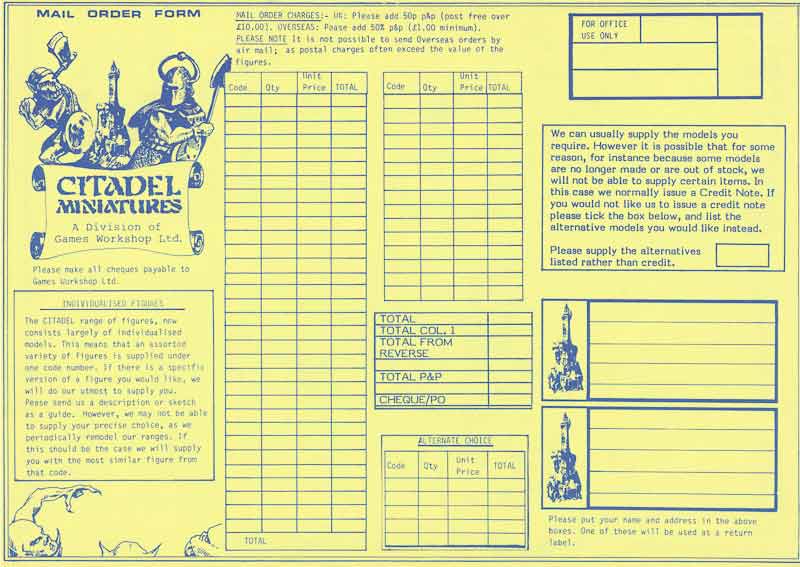 MAIL ORDER FORM
CITADEL
MINIATURES
A Division of
Games Workshop Ltd.
Please make all cheques payable to
Games Workshop Ltd.
INDIVIDUALISED FIGURES
The CITADEL range of figures, now
consists largely of individualised
models. This means that an assorted
variety of figures is supplied under
one code number. If there is a specific
version of a figure you would like, we
will do our utmost to supply you.
Pease send us a description or sketch
as a guide. However, we may not be able
to supply your precise choice, as we
periodically remodel our ranges. If
this should be the case we will supply
you with the most similar figure from
that code.
MAIL ORDER CHARGES:- UK: Please add 50p p&p (post free over
£10.00). OVERSEAS: Pease add 50% p&p (£1.00 minimum).
PLEASE NOTE It is not possible to send Overseas orders by
air mail; as postal charges often exceed the value of the
figures.
Code Qty Unit Price TOTAL
TOTAL
Code Qty Unit Price TOTAL
TOTAL
TOTAL COL. 1
TOTAL FROM
REVERSE
TOTAL P&P
CHEQUE/PO
ALTERNATE CHOICE
Code Qty Unit Price TOTAL
FOR OFFICE
USE ONLY
We can usually supply the models you
require. However it is possible that for some
reason, for instance because some models
are no longer made or are out of stock, we
will not be able to supply certain items. In
this case we normally issue a Credit Note. If
you would not like us to issue a credit note
please tick the box below, and list the
alternative models you would like instead.
Please supply the alternatives
listed rather than credit.
Please put your name and address in the above
boxes. One of these will be used as a return
label.